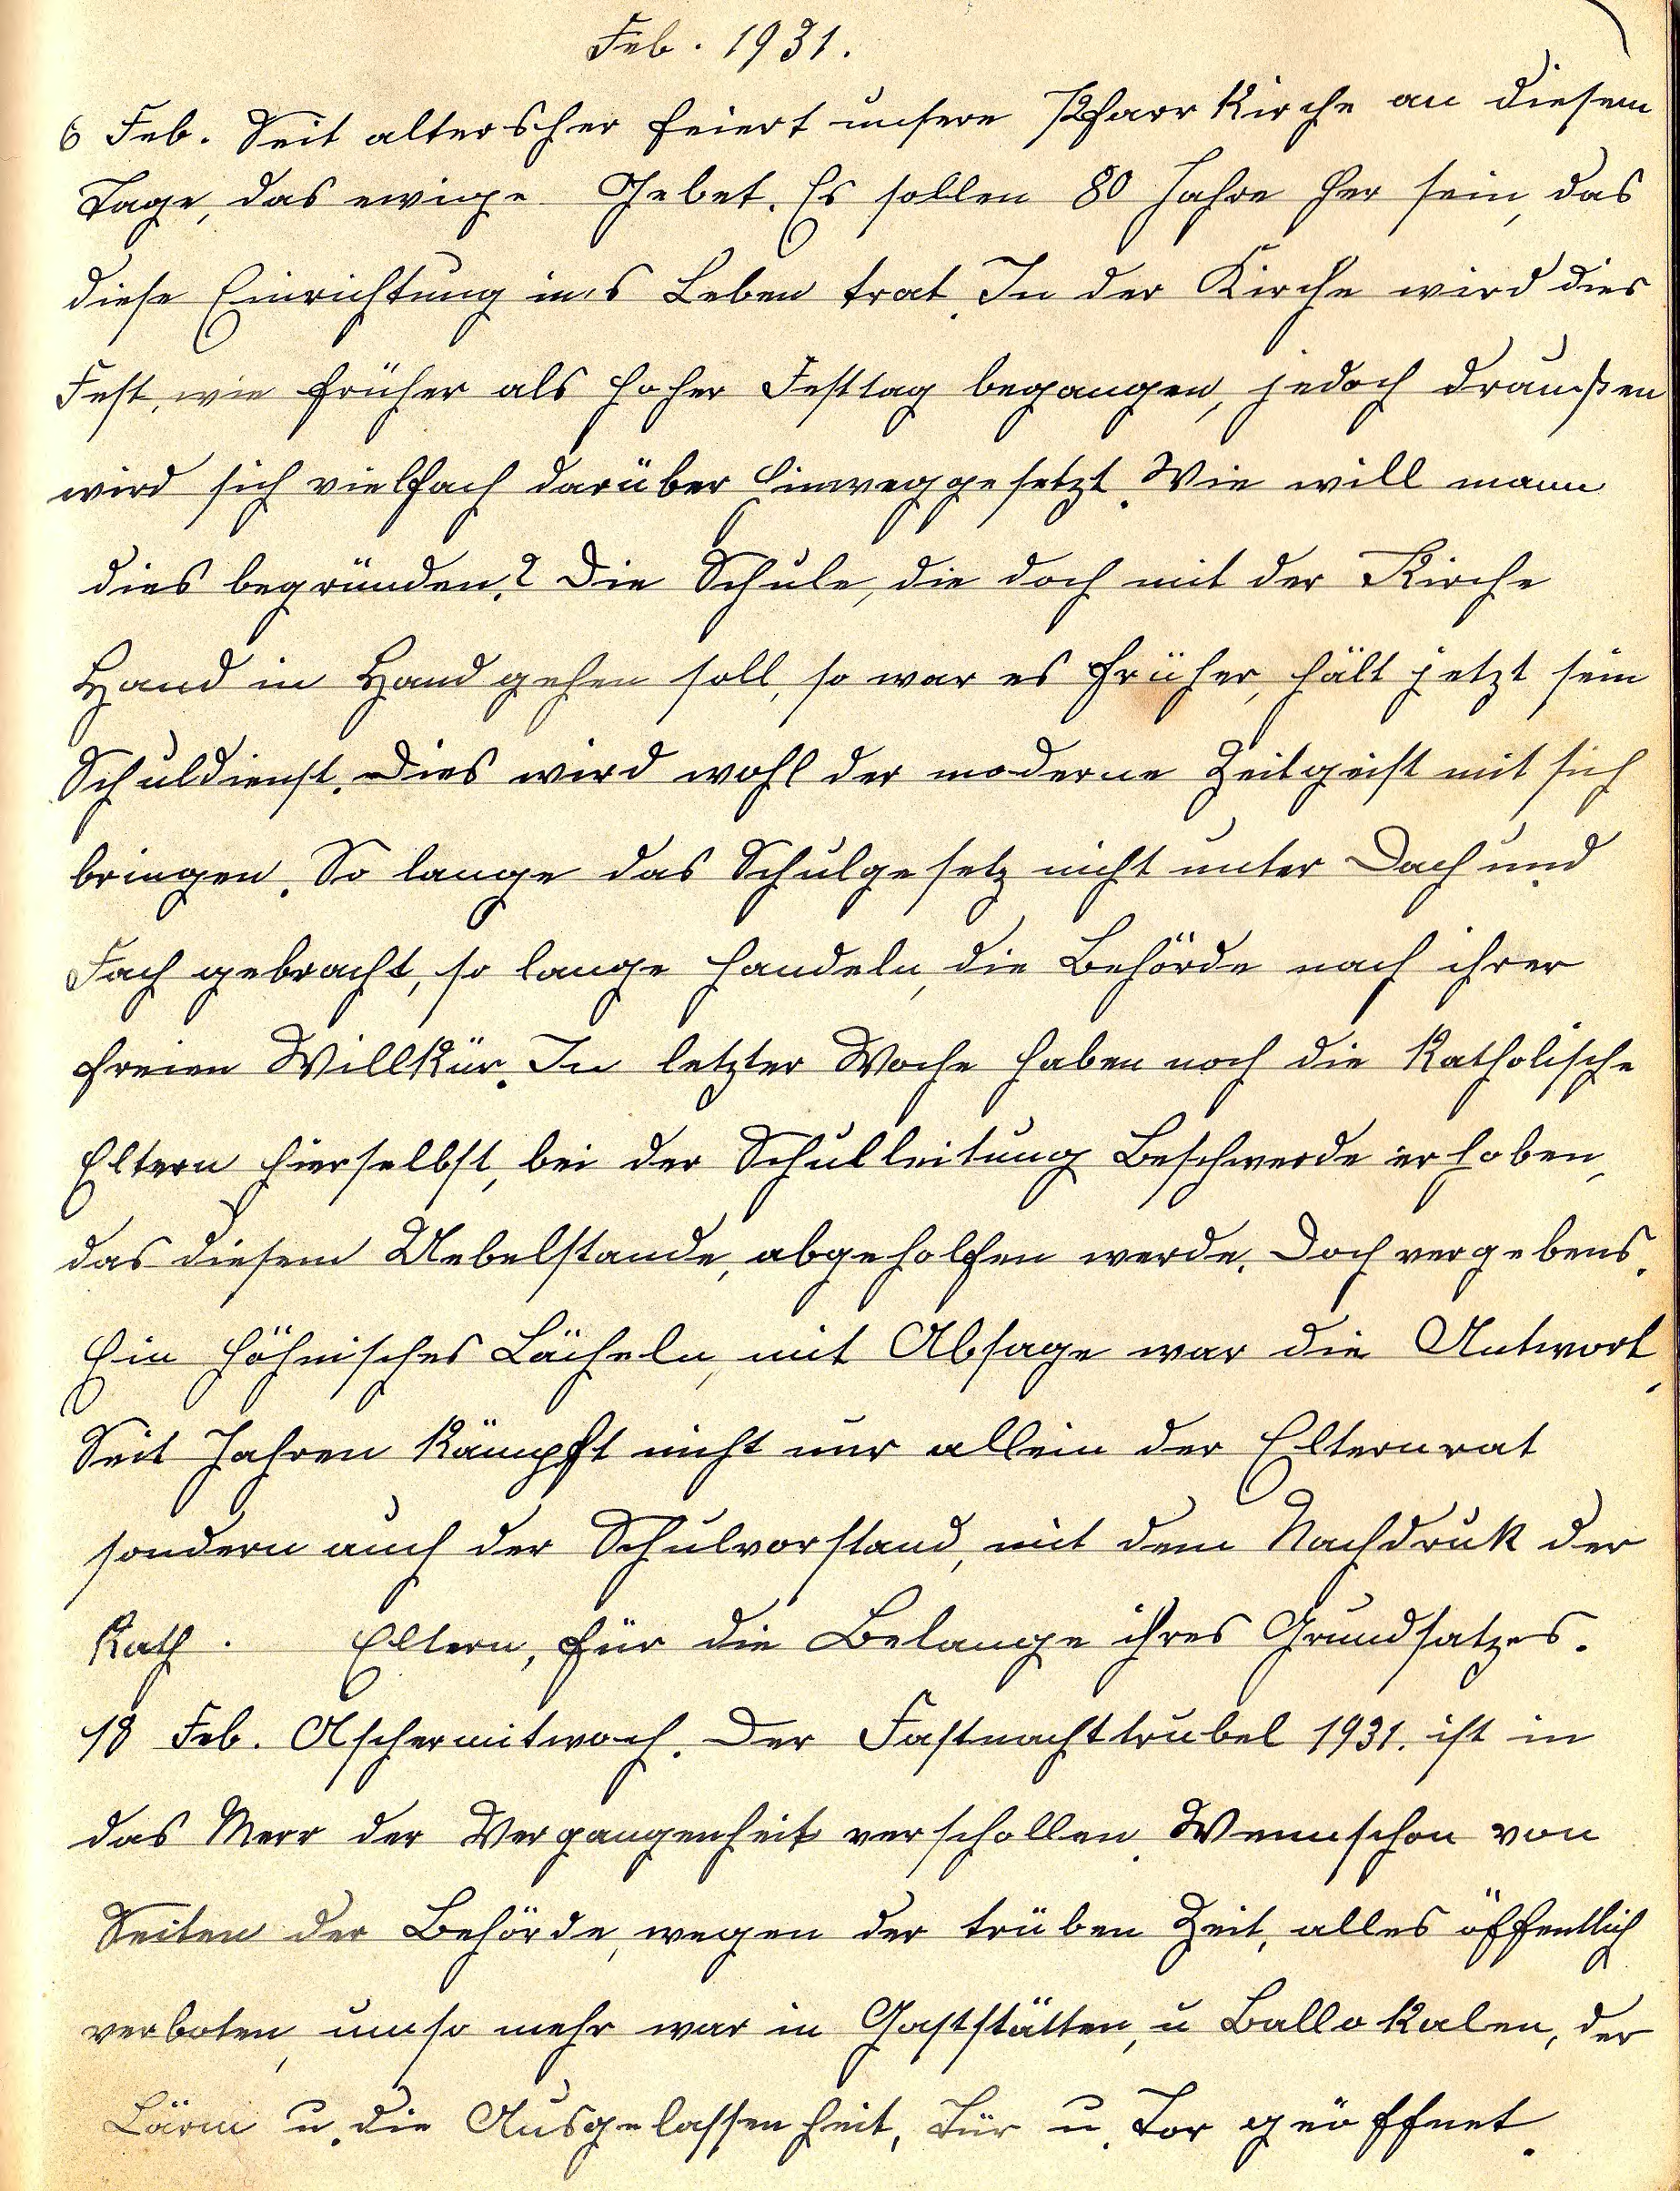 Feb. 1931.
6 Feb. Seit altersher feiert unsere Pfarrkirche an diesem
Tage, das ewige Gebet. Es sollen 80 Jahre her sein, das
diese Einrichtung in's Leben trat. In der Kirche wird dies
Fest, wie früher als hoher Festtag begangen, jedoch draußen
wird sich vielfach darüber hinweggesetzt. Wie will mann
dies begründen? Die Schule, die doch mit der Kirche
Hand in Hand gehen soll, so war es früher, hält jetzt sein
Schuldienst. Dies wird wohl der moderne Zeitgeist mit sich
bringen. So lange das Schulgesetz nicht unter Dach und
Fach gebracht, so lange handeln, die Behörde nach ihrer
freien Willkür. In letzter Woche haben noch die Katholische
Eltern hierselbst, bei der Schulleitung Beschwerde erhoben,
das diesem Uebelstande, abgeholfen werde. Doch vergebens.
Ein höhnisches Lächeln, mit Absage war die Antwort.
Seit Jahren kämpft nicht nur allein der Elternrat
sondern auch der Schulvorstand, mit dem Nachdruk der
Kath. Eltern, für die Belange ihres Grundsatzes.
18 Feb. Aschermitwoch. Der Fastnachttrubel 1931. ist in
das Merr der Vergangenheit verschollen. Wennschon von
Seiten der Behörde, wegen der trüben Zeit, alles öffentlich
verboten, umso mehr war in Gaststätten, u Ballokalen, der
Lärm u. die Ausgelassenheit, Tür u. Tor geöffnet.